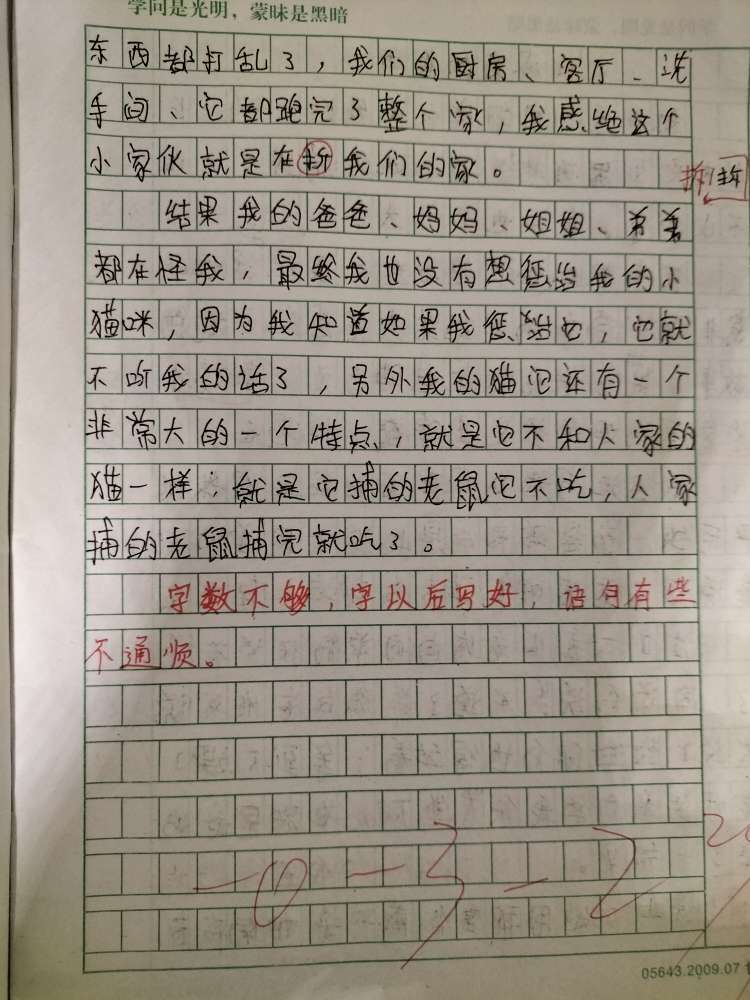 学问是光明，蒙昧是黑暗
东西都打乱了，我们的厨房、客厅、洗
手间、它都跑完了整个家，我感绝这个
小家伙就是在折我们的家。
拆 拆
结果我的爸爸、妈妈、姐姐、弟弟
都在怪我，最终我也没有想惩治我的小
猫咪，因为我知道如果我惩治它，它就
不听我的话了，另外我的猫它还有一个
非常大的一个特点，就是它不和人家的
猫一样，就是它捕的老鼠它不吃，人家
捕的老鼠捕完就吃了。
字数不够，字以后写好，语句有些
不通顺。
-0-3-2
05643.2009.07